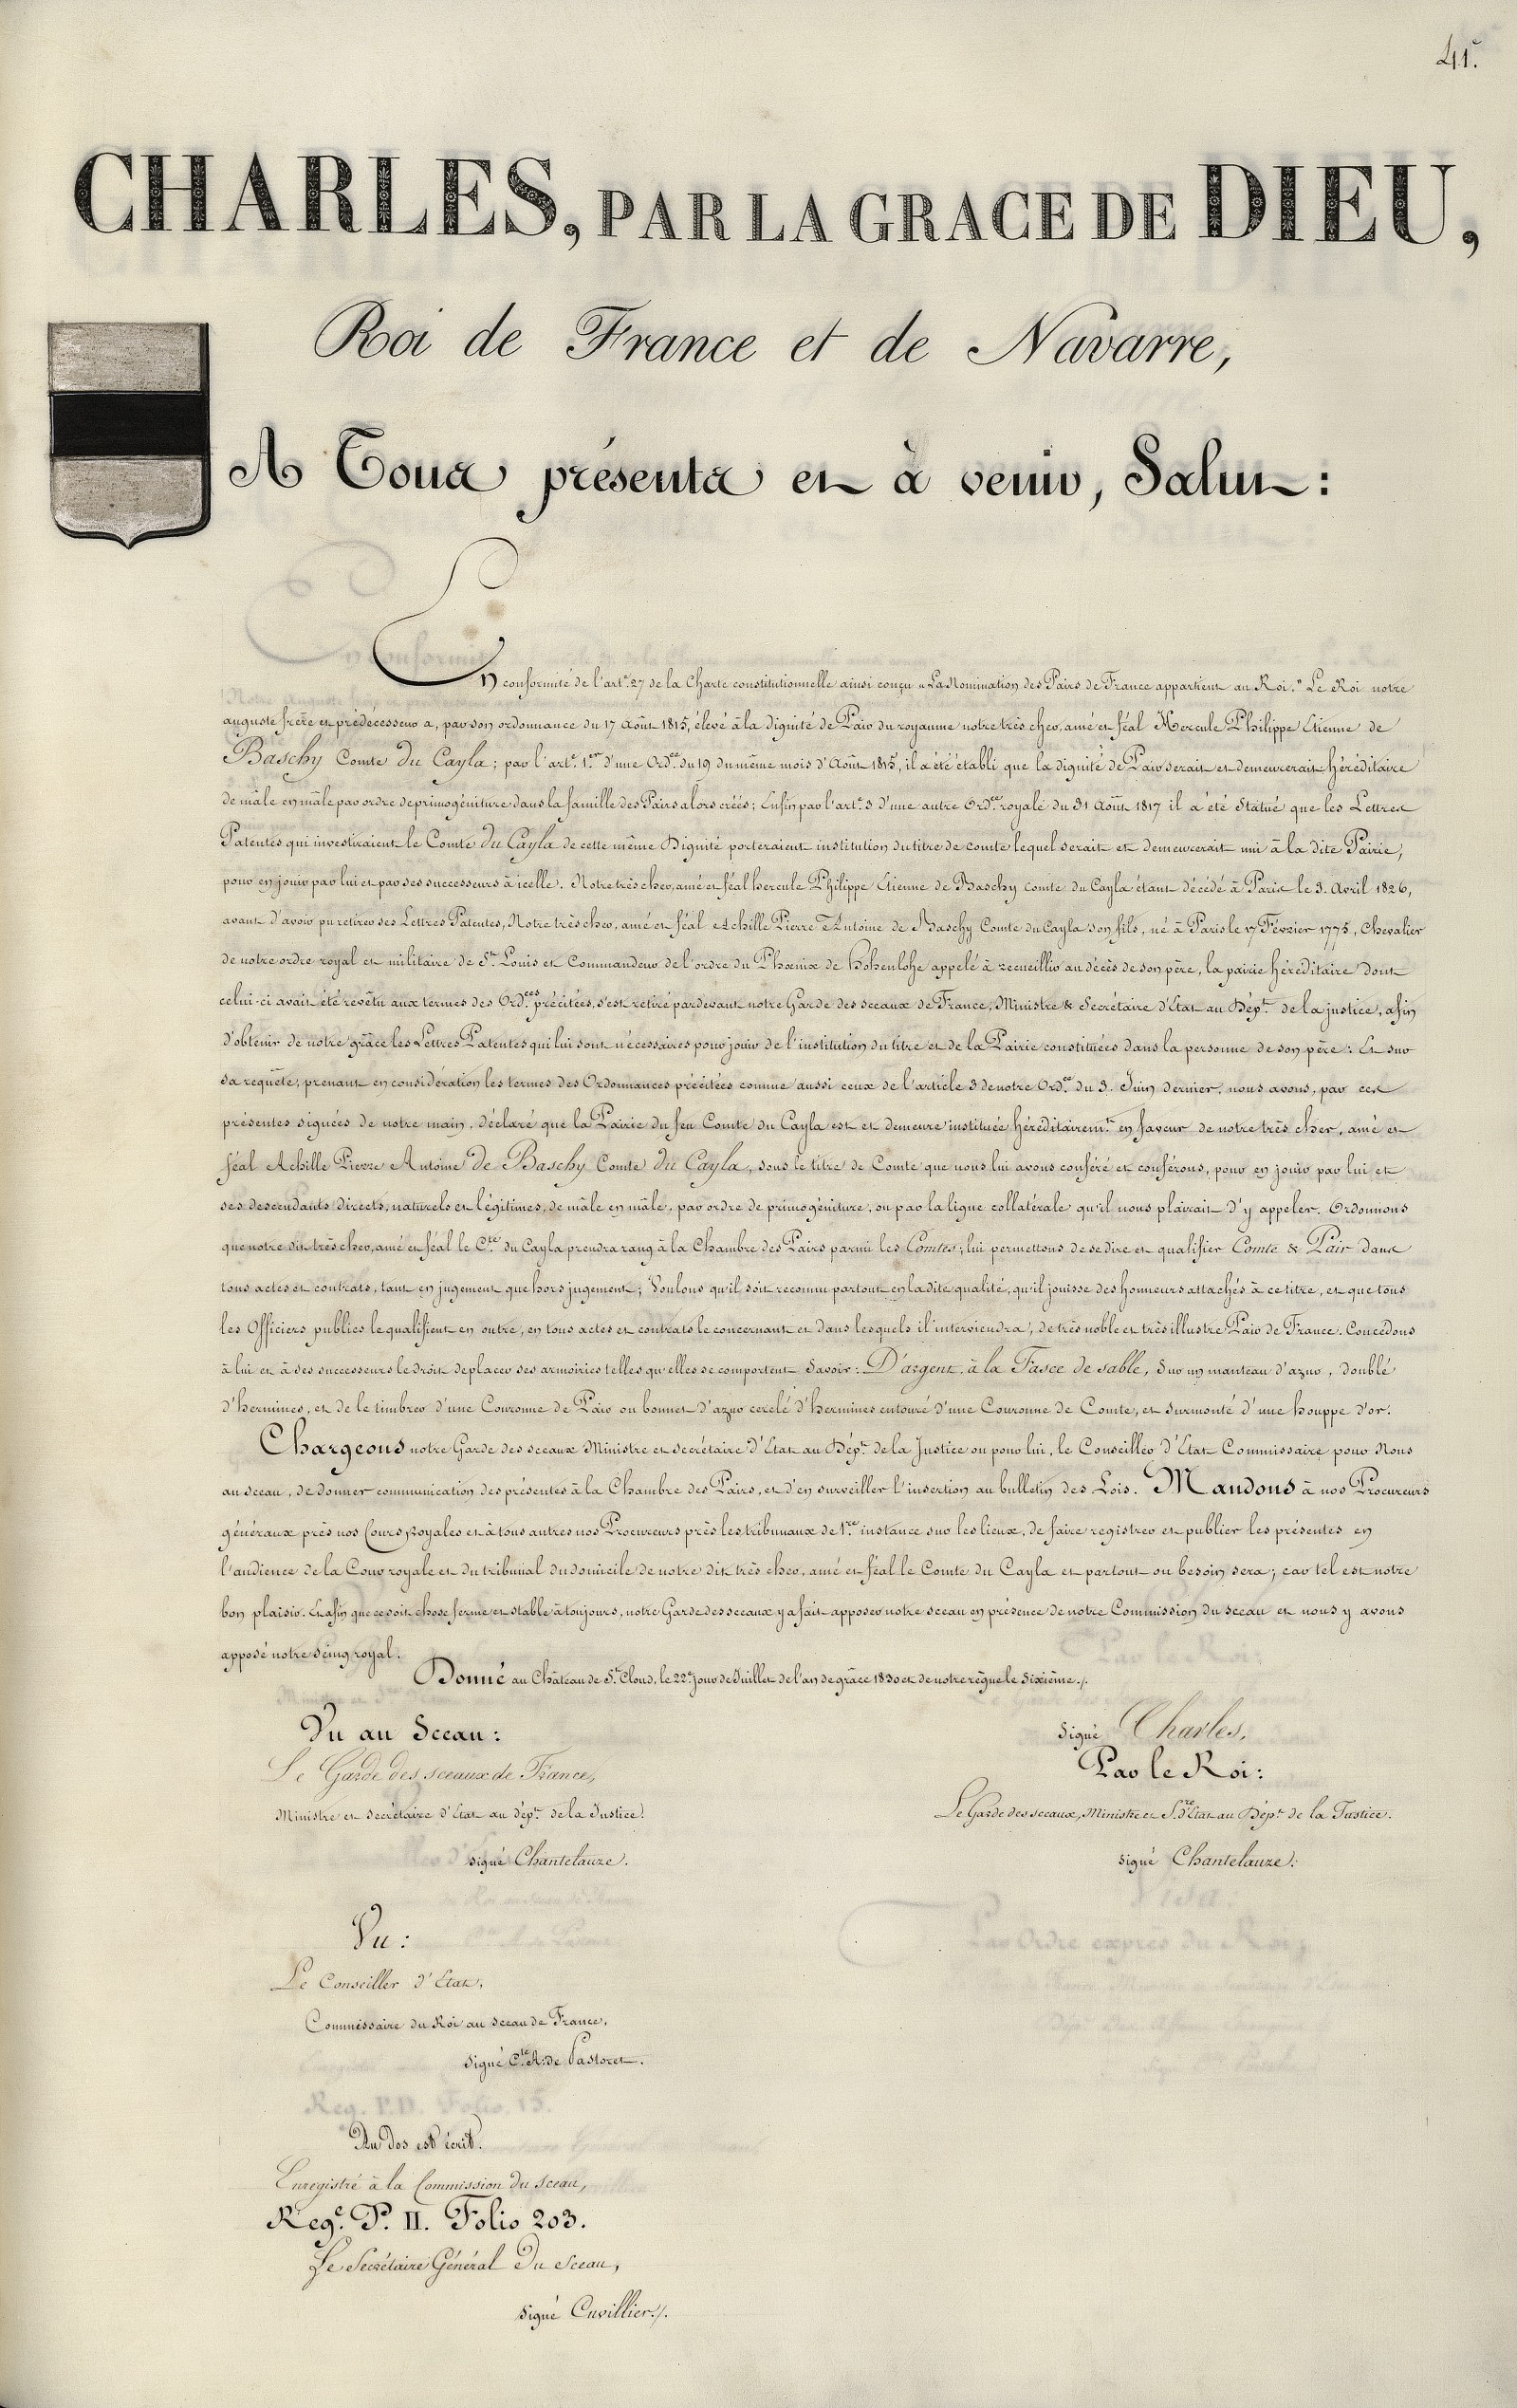 41.
CHARLES, PAR LA GRACE DE DIEU,
Roi de France et de Navarre,
A Tous présents et à venir, Salut :
En conformité de l'art.e 27 de la Charte constitutionnelle ainsi conçu « La Nomination des Pairs de France appartient au Roi. » Le Roi notre
auguste frère et prédécesseur a, par son ordonnance du 17 Août 1815, élevé à la dignité de Pair du royaume notre très cher, amé et féal Hercule Philippe Etienne de
Baschy Comte du Cayla ; par l'art.e 1.er d'une Ord.ce du 19 du même mois d'Août 1815, il a été établi que la dignité de Pair serait et demeurerait héréditaire
de mâle en mâle par ordre de primogéniture dans la famille des Pairs alors créés ; Enfin par l'art.e 3 d'une autre Ord.ce royale du 31 Août 1817 il a été Statué que les Lettres
Patentes qui investiraient le Comte du Cayla de cette même Dignité porteraient institution du titre de comte lequel serait et demeurerait uni à la dite Pairie,
pour en jouir par lui et par ses successeurs à icelle. Notre très cher, amé et féal hercule Philippe Etienne de Baschy comte du Cayla étant décédé à Paris le 3. Avril 1826,
avant d'avoir pu retirer ses Lettres Patentes, Notre très cher, amé et féal Achille Pierre Antoine de Baschy Comte du Cayla son fils, né à Paris le 17 Février 1775, Chevalier
de notre ordre royal et militaire de S.t Louis et Commandeur de l'ordre du Phœnix de hohenlohe appelé à recueillir au décès de son père, la pairie héréditaire dont
celui-ci avait été revêtu aux termes des Ord.ces précitées, s'est retiré pardevant notre Garde des sceaux de France, Ministre & Secrétaire d'Etat au Dép.t de la justice, afin
d'obtenir de notre grâce les Lettres Patentes qui lui sont nécessaires pour jouir de l'institution du titre et de la Pairie constituées dans la personne de son père : Et sur
sa requête, prenant en considération les termes des Ordonnances précitées comme aussi ceux de l'article 3 de notre Ord.ce du 3. Juin dernier, nous avons, par ces
présentes signées de notre main, déclaré que la Pairie du feu Comte du Cayla est et demeure instituée héréditairem.t en faveur de notre très cher, amé et
féal Achille Pierre Antoine de Baschy Comte du Cayla, sous le titre de Comte que nous lui avons conféré et conférons, pour en jouir par lui et
ses descendants directs, naturels et légitimes, de mâle en mâle, par ordre de primogéniture, ou par la ligne collatérale qu'il nous plairait d'y appeler. Ordonnons
que notre dit très cher, amé et féal le C.te du Cayla prendra rang à la Chambre des Pairs parmi les Comtes ; lui permettons de se dire et qualifier Comte & Pair dans
tous actes et contrats, tant en jugement que hors jugement ; Voulons qu'il soit reconnu partout en la dite qualité, qu'il jouisse des honneurs attachés à ce titre, et que tous
les Officiers publics le qualifient en outre, en tous actes et contrats le concernant et dans lesquels il interviendra, de très noble et très illustre Pair de France. Concédons
à lui et à ses successeurs le droit de placer ses armoiries telles qu'elles se comportent Savoir : D'argent, à la Fasce de sable, Sur un manteau d'azur, doublé
d'hermines, et de le timbrer d'une Couronne de Pair ou bonnet d'azur cerclé d'hermines entouré d'une Couronne de Comte, et surmonté d'une houppe d'or.
Chargeons notre Garde des sceaux Ministre et secrétaire d'Etat au Dép.t de la Justice ou pour lui, le Conseiller d'Etat Commissaire pour Nous
au sceau, de donner communication des présentes à la Chambre des Pairs, et d'en surveiller l'insertion au bulletin des Lois. Mandons à nos Procureurs
généraux près nos Cours Royales et à tous autres nos Procureurs près les tribunaux de 1.re instance sur les lieux, de faire registrer et publier les présentes en
l'audience de la Cour royale et du tribunal du domicile de notre dit très cher, amé et féal le Comte du Cayla et partout ou besoin sera ; car tel est notre
bon plaisir. Et afin que ce soit chose ferme et stable à toujours, notre Garde des sceaux y a fait apposer notre sceau en présence de notre Commission du sceau et nous y avons
apposé notre seing royal.
Donné au Château de S.t Cloud, le 22.e jour de Juillet de l'an de grâce 1830 et de notre règne le Sixième ./.
Vu au Sceau :
Le Garde des sceaux de France,
Ministre et secrétaire d'Etat au dép.t de la Justice.
signé Chantelauze.
signé Charles.
Par le Roi :
Le Garde des sceaux, Ministre et S.re d'Etat au Dép.t de la Justice.
signé Chantelauze.
Vu :
Le Conseiller d'Etat,
Commissaire du Roi au sceau de France,
signé C.te A. de Pastoret.
Au dos est écrit.
Enregistré à la Commission du sceau,
Reg.e P. II. Folio 203.
Le Secrétaire Général du sceau,
signé Cuvillier ./.